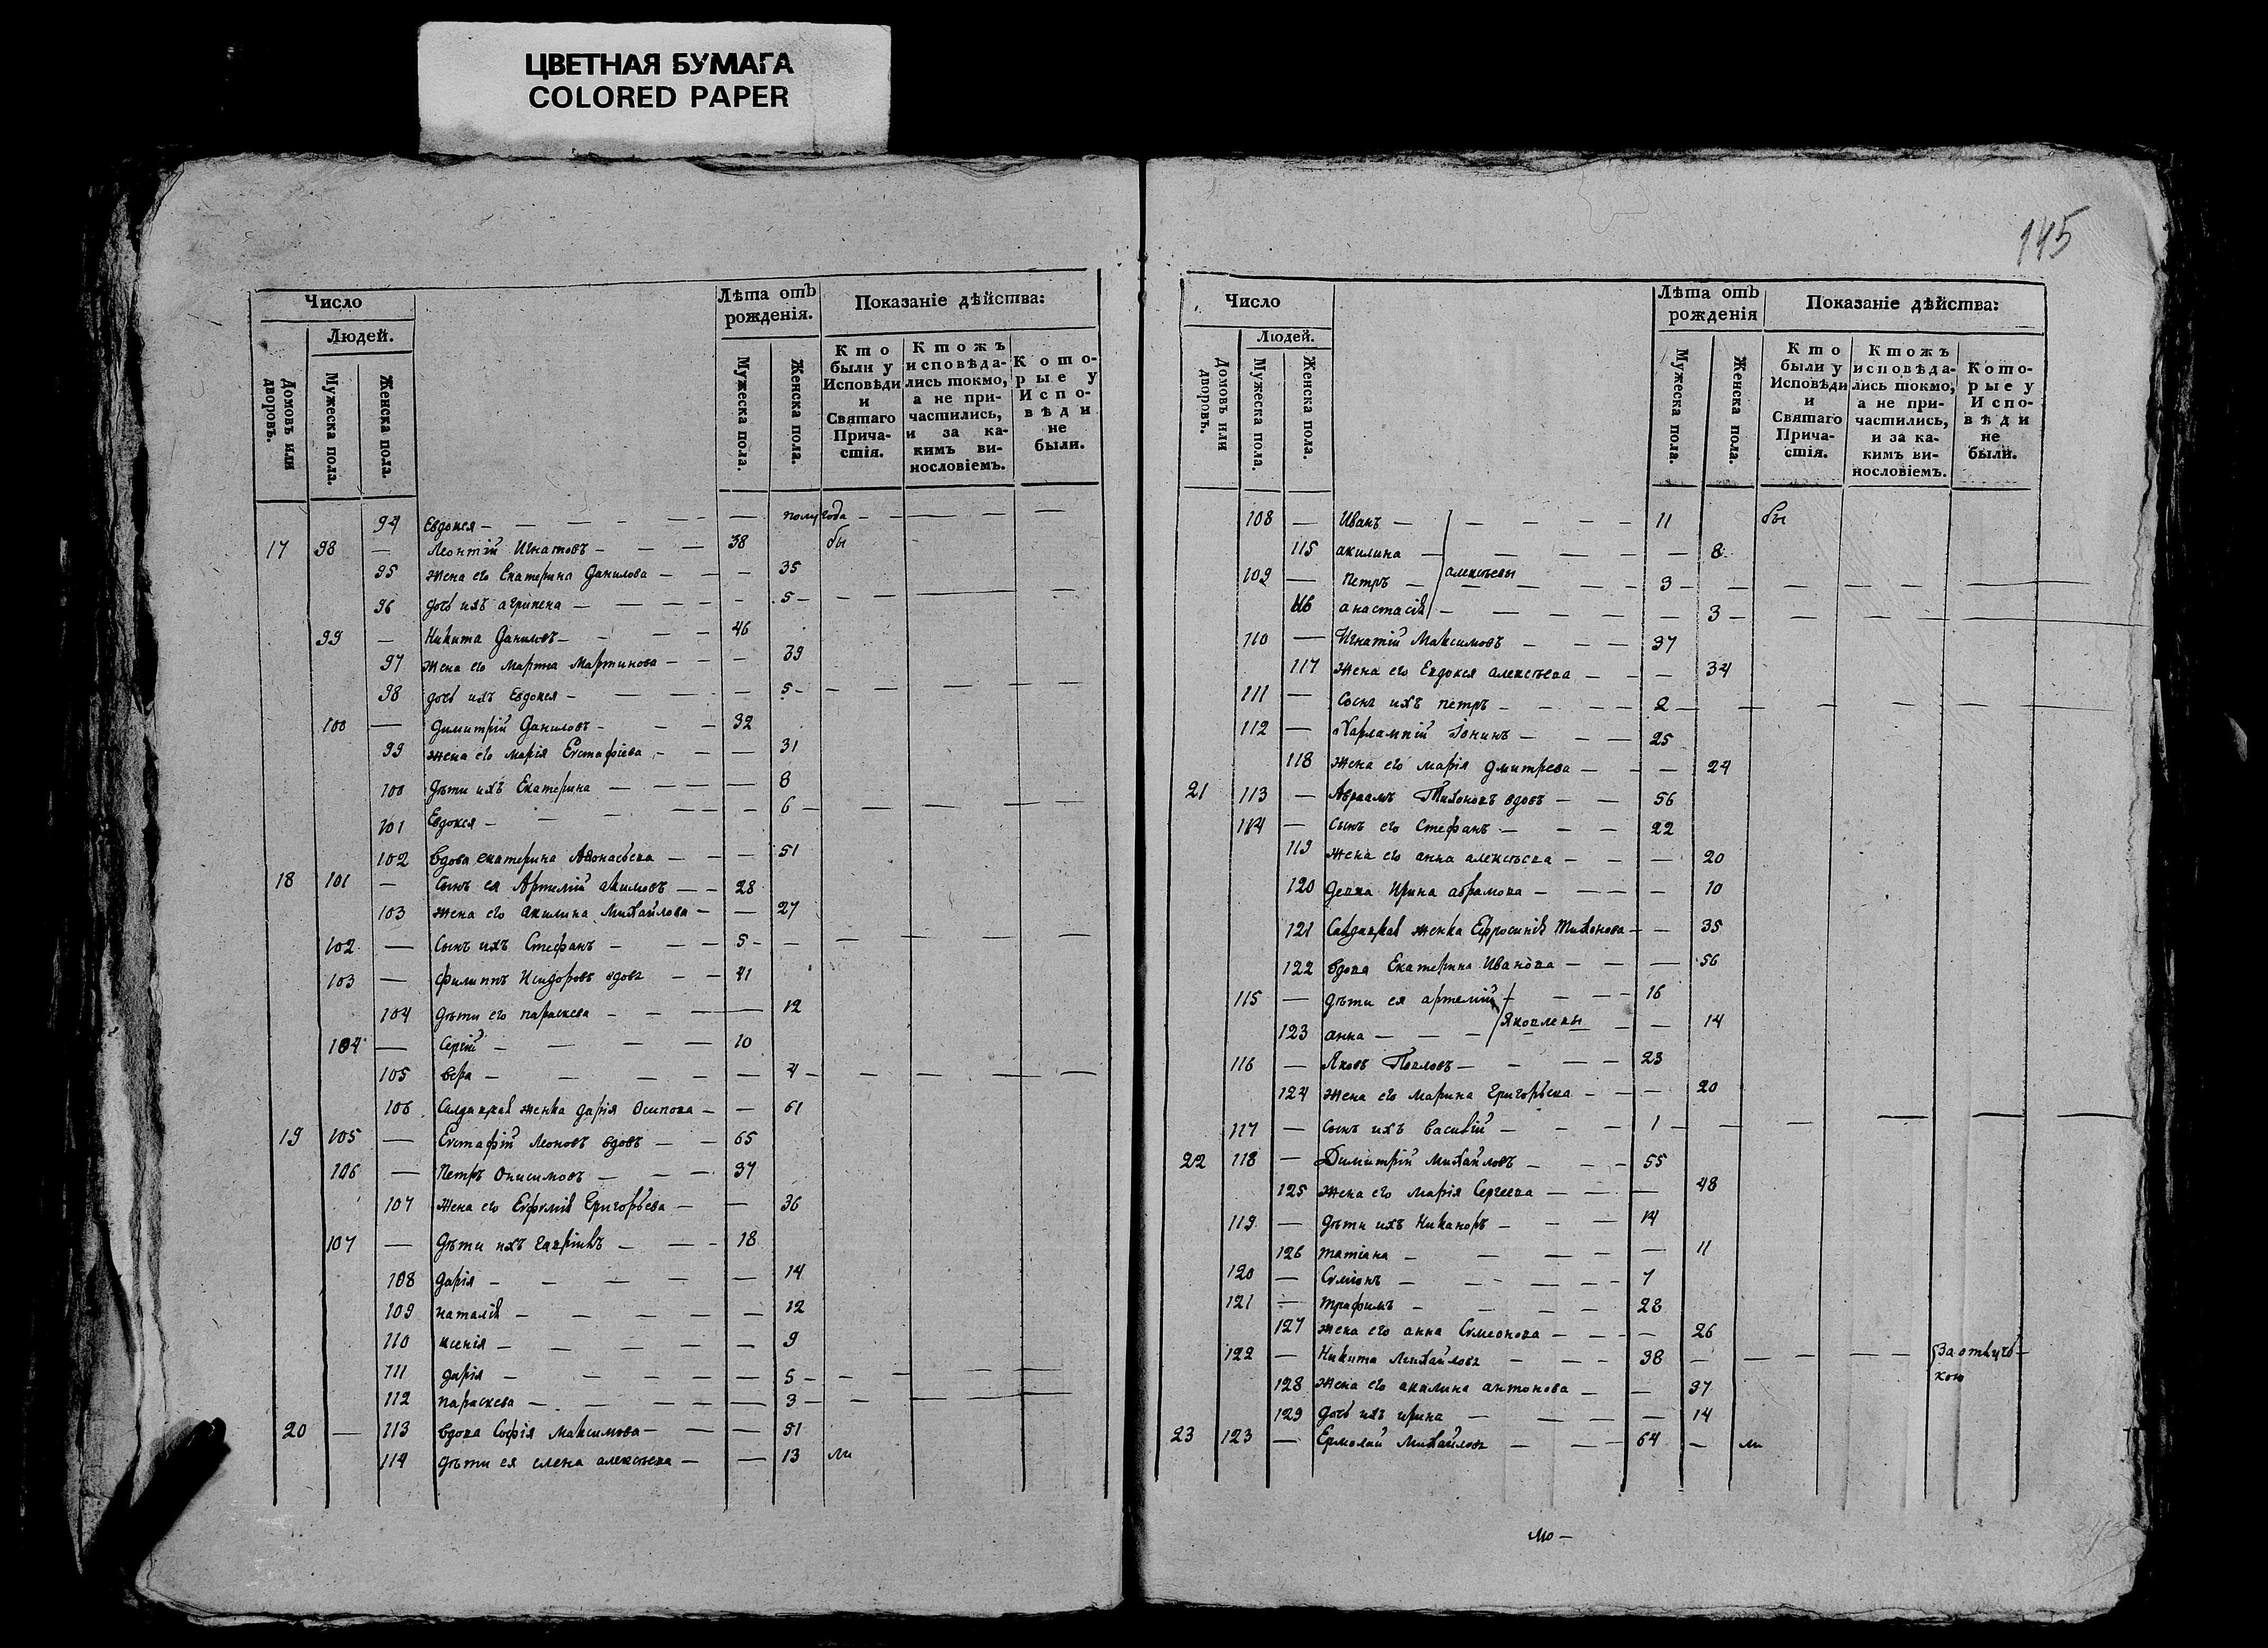 ЦВЕТНАЯ БУМАГА
COLORED PAPER
Число
Людей.
Домовъ или дворовъ.
Мужеска пола.
Женска пола.
Лѣта отъ рожденія.
Мужеска пола.
Женска пола.
Показаніе дѣйства:
Кто были у Исповѣди и Святаго Причастія.
Ктожъ исповѣдались токмо, а не причастились, и за какимъ винословіемъ.
Которые у Исповѣди не были.
94 Евдокея — — — — — — полугода — — — —
17 98 — Леонтій Игнатовъ — — — 38 бы
95 жена его Екатерина Данилова — — — 35
96 дочь ихъ агрипена — — — — — 5 — — — — —
99 — Никита Даниловъ — — — 46
97 жена его Марѳа Мартинова — — — 39
98 дочь ихъ Евдокея — — — — 5 — — — — — —
100 — Димитрій Даниловъ — — — 32
99 жена его марія Евстафіева — — — 31
100 дѣти ихъ Екатерина — — — — 8
101 Евдокея — — — — — — 6 — — — — —
102 вдова екатерина Афонасьева — — — 51
18 101 — Сынъ ея Артемій акимовъ — — 28
103 жена его акилина Михайлова — — 27
102 — Сынъ ихъ Стефанъ — — — 5 — — — — — —
103 — филиппъ Исидоровъ вдовъ — — 41
104 дѣти его параскева — — — — 12
104 — Сергій — — — — 10
105 вера — — — — — 4 — — — — —
106 Салдацкая женка дарія Осипова — — 61
19 105 — Евстафій Леоновъ вдовъ — — 65
106 — Петръ Онисимовъ — — — 37
107 жена его Евфимія Григорьева — — 36
107 — дѣти ихъ гавріилъ — — — 18
108 дарія — — — — — 14
109 наталія — — — — — 12
110 ксенія — — — — — 9
111 дарія — — — — — 5 — — — — —
112 параскева — — — — — 3 — — — — —
20 — 113 вдова Софія Максимова — — — 51
114 дѣти ея елена алексѣева — — 13 ли
145
Число
Людей.
Домовъ или дворовъ.
Мужеска пола.
Женска пола.
Лѣта отъ рожденія
Мужеска пола.
Женска пола.
Показаніе дѣйства:
Кто были у Исповѣди и Святаго Причастія.
Ктожъ исповѣдались токмо, а не причастились, и за какимъ винословіемъ.
Которые у Исповѣди не были.
108 — Иванъ — — — — — 11 бы
115 акилина — — — — — — 8
алексѣевы
109 — Петръ — — — — — 3 — — — — —
116 анастасія — — — — — 3 — — — — —
110 — Игнатій Максимовъ — — — 37
117 жена его Евдокея алексѣева — — — 34
111 — Сынъ ихъ петръ — — — — 2 — — — — — —
112 — Харлампій Іонинъ — — — 25
118 жена его марія дмитрева — — — 24
21 113 — Авраамъ Тихоновъ вдовъ — — 56
114 — Сынъ его Стефанъ — — — 22
119 жена его анна алексѣева — — — 20
120 девка Ирина абрамова — — — — 10
121 Салдацкая женка Ефросинія Тихонова — — 35
122 вдова Екатерина Иванова — — — 56
115 — дѣти ея артемій — — — — 16
Яковлевы
123 анна — — — — — — 14
116 — Яковъ Павловъ — — — — 23
124 жена его марина григорьева — — — 20
117 — Сынъ ихъ василій — — — 1 — — — — — —
22 118 — Димитрій Михайловъ — — — 55
125 жена его марія Сергеева — — — 48
119 — дѣти ихъ Никаноръ — — — 14
126 татіана — — — — — 11
120 — Симіонъ — — — — — 7
121 — трафимъ — — — — 28
127 жена его анна Симеонова — — — — 26
122 — Никита Михайловъ — — — 38 — — — — — За отлуч-
кою
128 жена его акилина антонова — — 37
129 дочь ихъ ирина — — — — 14
23 123 — Ермолай Михайловъ — — — 64 — ли
мо —